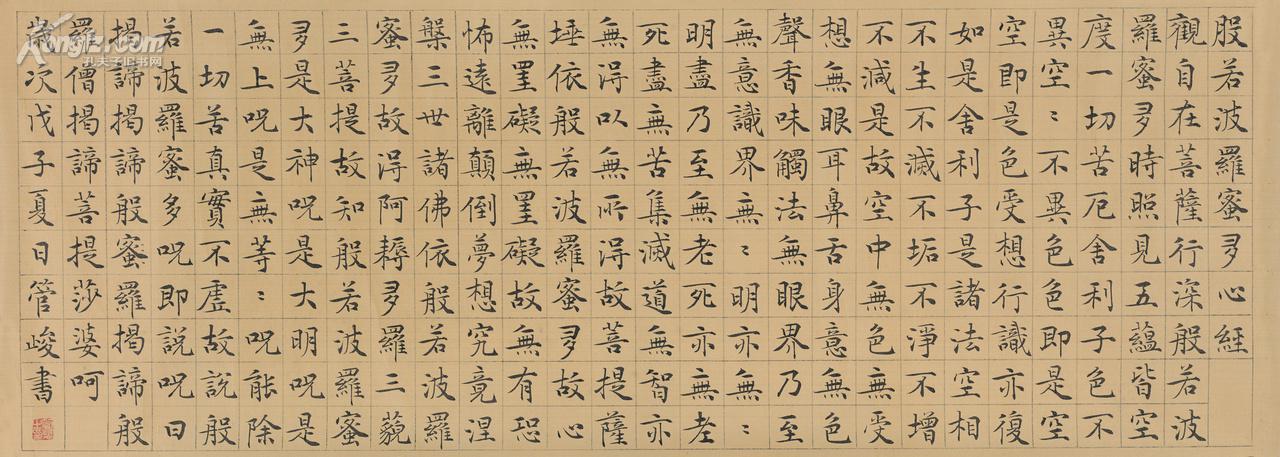 般若波羅蜜多心經
觀自在菩薩行深般若波
羅蜜多時照見五蘊皆空
度一切苦厄舍利子色不
異空〻不異色色即是空
空即是色受想行識亦復
如是舍利子是諸法空相
不生不滅不垢不淨不增
不減是故空中無色無受
想無眼耳鼻舌身意無色
聲香味觸法無眼界乃至
無意識界無〻明亦無〻
明盡乃至無老死亦無老
死盡無苦集滅道無智亦
無得以無所得故菩提薩
埵依般若波羅蜜多故心
無罣礙無罣礙故無有恐
怖遠離顛倒夢想究竟涅
槃三世諸佛依般若波羅
蜜多故得阿耨多羅三藐
三菩提故知般若波羅蜜
多是大神咒是大明咒是
無上咒是無等〻咒能除
一切苦真實不虛故說般
若波羅蜜多咒即說咒曰
揭諦揭諦般蜜羅揭諦般
羅僧揭諦菩提莎婆呵
歲次戊子夏日管峻書
孔夫子旧书网